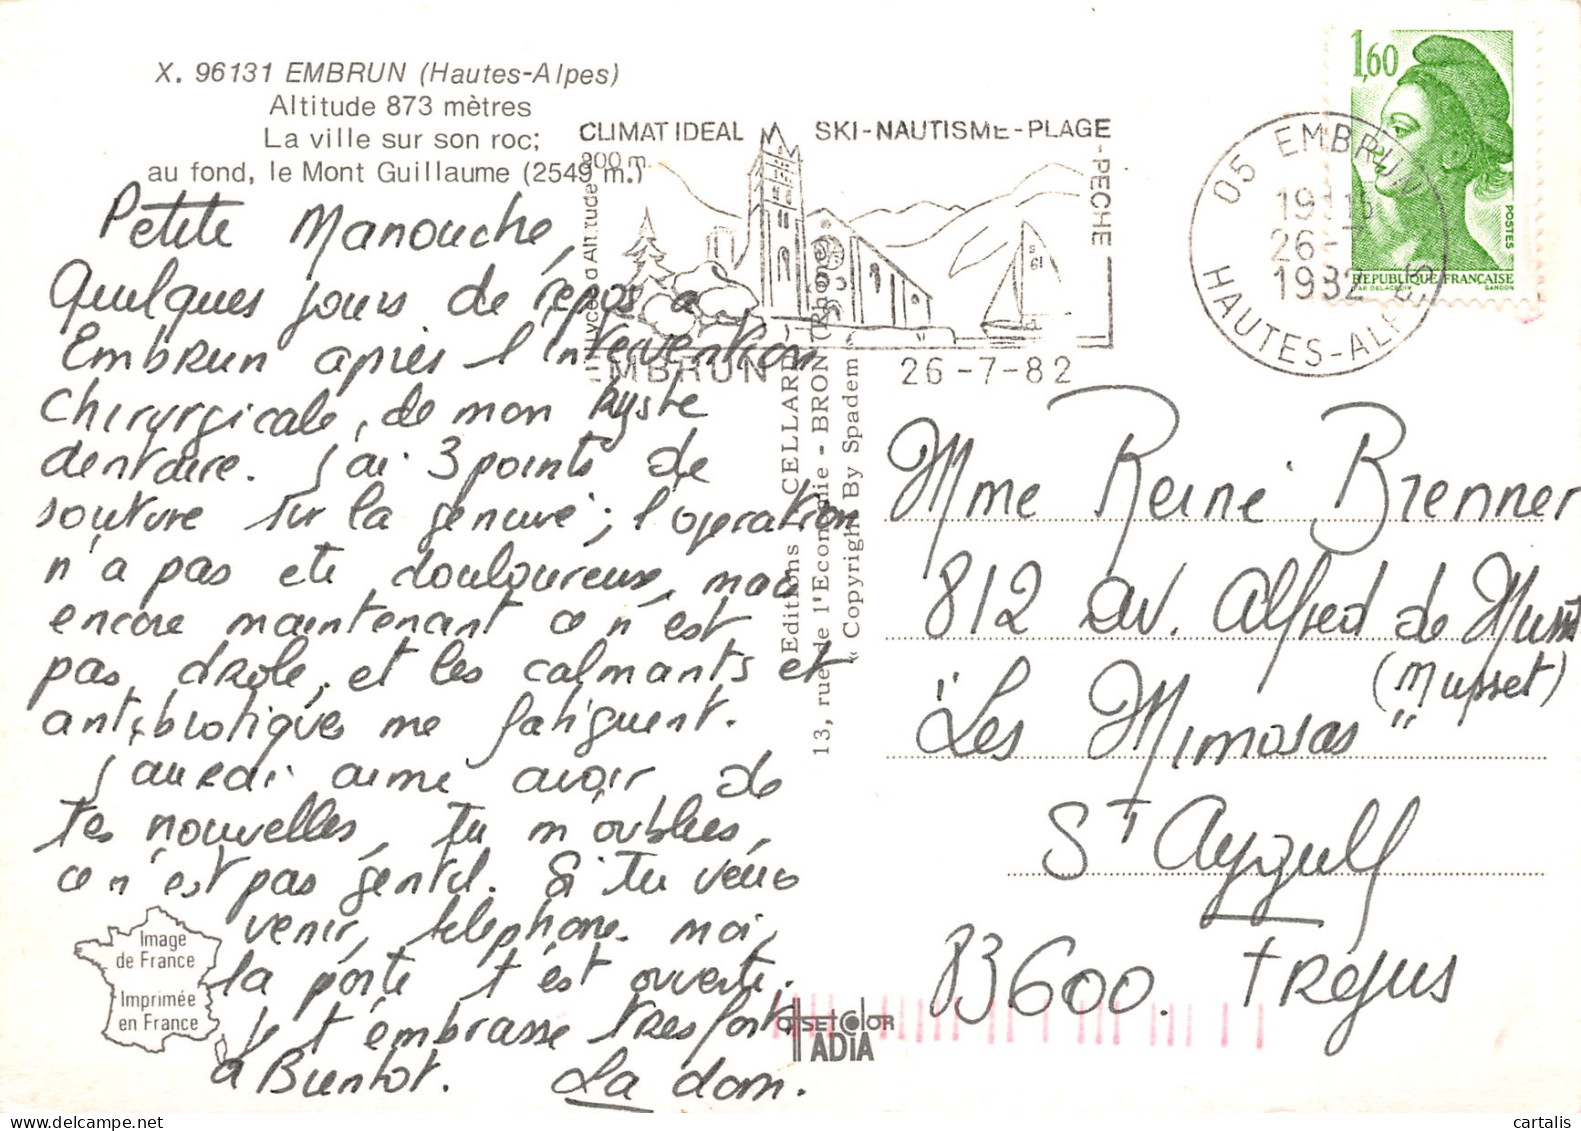 X. 96131 EMBRUN (Hautes-Alpes)
Altitude 873 mètres
La ville sur son roc;
au fond, le Mont Guillaume (2549 m.)
CLIMAT IDEAL SKI-NAUTISME-PLAGE
-PECHE
900 m.
Lycée d'Altitude
EMBRUN 26-7-82
1,60
REPUBLIQUE FRANÇAISE
POSTES
GANDON
05 EMBRUN
19H15
26-7
1982
HAUTES-ALPES
Petite Manouche,
Quelques jours de répos a
Embrun après l'intervention
chirurgicale, de mon kyste
dentaire. J'ai 3 points de
souture sur la gencive ; l'operation
n'a pas eté douloureuse, mais
encore maintenant ce n'est
pas drole, et les calmants et
antibiotiques me fatiguent.
J'aurai aimé avoir de
tes nouvelles, tu m'oublies,
ce n'est pas gentil. Si tu veux
venir, telephone-moi,
la porte t'est ouverte.
Je t'embrasse tres fort,
a Bientot. La dom.
Editions CELLARD
13, rue de l'Economie - BRON (Rhône)
« Copyright By Spadem »
Mme Reiné Brenner
812 av. Alfred de Musset
(Musset)
"Les Mimosas"
St Aygulf
83600. Frejus
Image
de France
Imprimée
en France
OFFSETCOLOR
IADIA
cartalis
www.delcampe.net